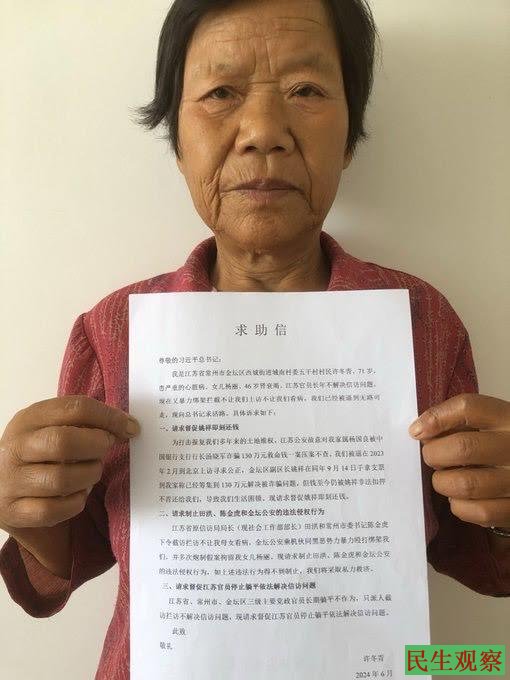 求助信
尊敬的习近平总书记:
我是江苏省常州市金坛区西城街道城南村委五干村村民许冬青,71岁,
患严重的心脏病,女儿杨丽,46岁肾衰竭,江苏官员长年不解决信访问题,
现在又暴力绑架拦截不让我们上访不让我们看病,我们已经被逼到无路可
走,现向总书记求活路,具体诉求如下:
一、请求督促姚祥即刻还钱
为打击报复我们多年来的土地维权,江苏公安故意对我家属杨国良被中
国银行支行行长汤晓军诈骗130万元救命钱一案压案不查,我们被逼在2023
年2月到北京上访寻求公正,金坛区副区长姚祥在同年9月14日拿支票到
我家称已经筹集到130万元解决被诈骗问题,但钱至今仍被姚祥非法扣押
不肯还给我们,导致我们生活困顿,现请求督促姚祥即刻还钱。
二、请求制止田洪、陈金虎和金坛公安的违法侵权行为
江苏省原信访局局长(现社会工作部部长)田洪和常州市委书记陈金虎
下令截访拦访不让我母女看病,金坛公安乘机伙同黑恶势力暴力殴打绑架我
们,并多次炮制假案拘留我女儿杨丽,现请求制止田洪、陈金虎和金坛公安
的违法侵权行为,如上述违法行为得不到制止,我们将采取私力救济。
三、请求督促江苏官员停止躺平依法解决信访问题
江苏省、常州市、金坛区三级主要党政官员长期躺平不作为,只派人截
访拦访不解决信访问题,现请求督促江苏官员停止躺平依法解决信访问题。
此致
敬礼
许冬青
2024年6月
民生观察